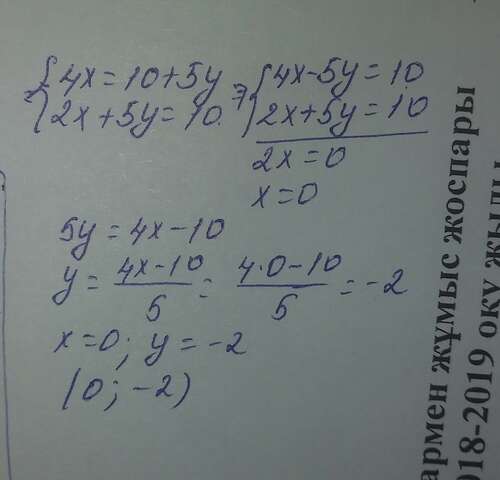 {4x=10+5y
{2x+5y=10.
=> {4x-5y=10
{2x+5y=10
2x=0
x=0
5y=4x-10
y= (4x-10)/5 = (4·0-10)/5 =-2
x=0; y=-2
(0; -2)
армен жұмыс жоспары
018-2019 оқу жылы